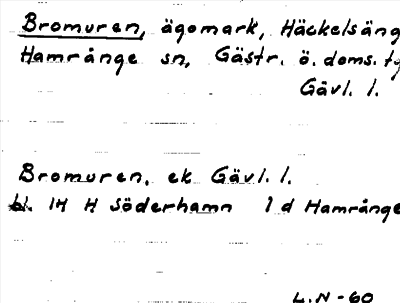 Bromuren, ägomark, Häckelsäng
Hamrånge sn, Gästr. ö. doms. tg
Gävl. l.
Bromuren. ek Gävl. l.
bl. 14 H Söderhamn 1 d Hamrånge
L.N-60